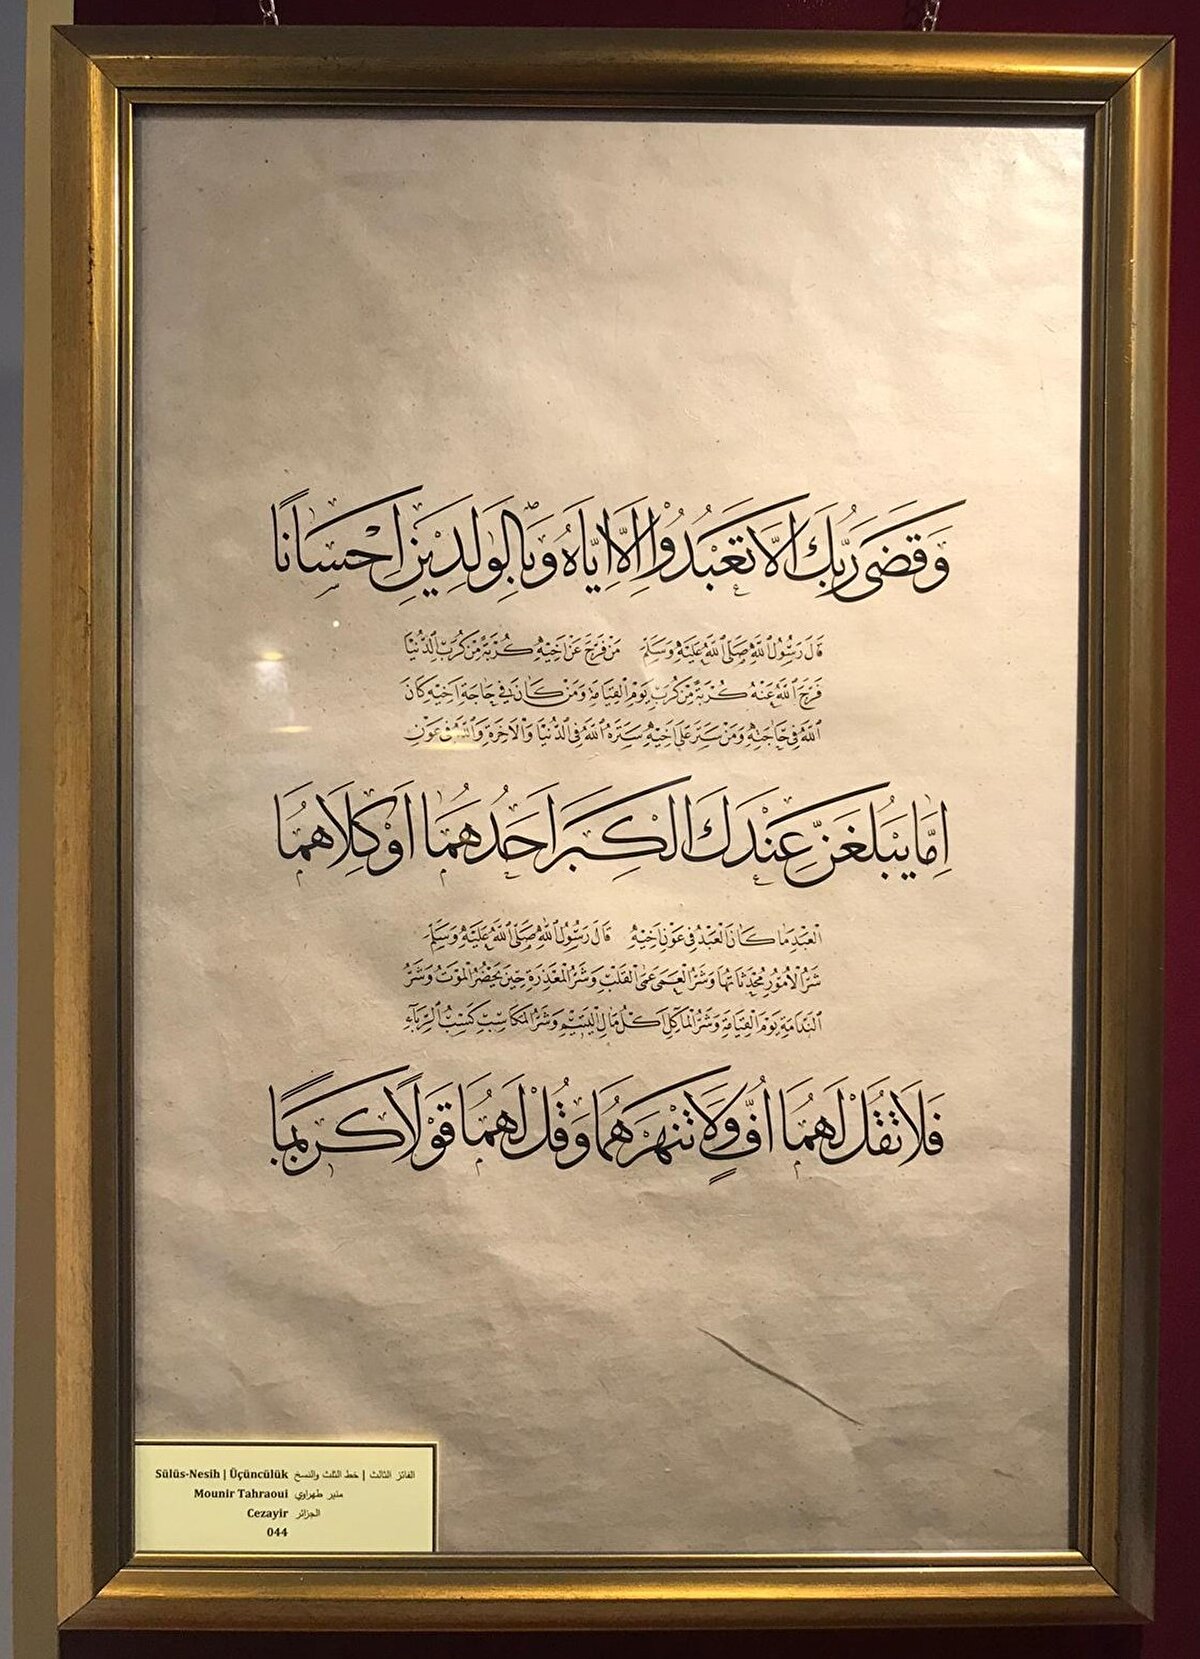 وَقَضَىٰ رَبُّكَ اَلَّا تَعْبُدُوْا اِلَّا اِيَّاهُ وَبِالْوَالِدَيْنِ اِحْسَانًا
قَالَ رَسُوْلُ اللّٰهِ صَلَّى اللّٰهُ عَلَيْهِ وَسَلَّمَ مَنْ فَرَّجَ عَنْ اَخِيْهِ كُرْبَةً مِنْ كُرَبِ الدُّنْيَا
فَرَّجَ اللّٰهُ عَنْهُ كُرْبَةً مِنْ كُرَبِ يَوْمِ الْقِيَامَةِ وَمَنْ كَانَ فِي حَاجَةِ اَخِيْهِ كَانَ
اللّٰهُ فِي حَاجَتِهِ وَمَنْ سَتَرَ عَلَى اَخِيْهِ سَتَرَهُ اللّٰهُ فِي الدُّنْيَا وَالْاٰخِرَةِ وَاللّٰهُ فِي عَوْنِ
اِمَّا يَبْلُغَنَّ عِنْدَكَ الْكِبَرَ اَحَدُهُمَا اَوْ كِلَاهُمَا
الْعَبْدِ مَا كَانَ الْعَبْدُ فِي عَوْنِ اَخِيْهِ قَالَ رَسُوْلُ اللّٰهِ صَلَّى اللّٰهُ عَلَيْهِ وَسَلَّمَ
شَرُّ الْاُمُوْرِ مُحْدَثَاتُهَا وَشَرُّ الْعَمَى عَمَى الْقَلْبِ وَشَرُّ الْمَعْذِرَةِ حِيْنَ يَحْضُرُ الْمَوْتُ وَشَرُّ
النَّدَامَةِ يَوْمَ الْقِيَامَةِ وَشَرُّ الْمَأْكَلِ اَكْلُ مَالِ الْيَتِيْمِ وَشَرُّ الْمَكَاسِبِ كَسْبُ الرِّبَاءِ
فَلَا تَقُلْ لَهُمَا اُفٍّ وَلَا تَنْهَرْهُمَا وَقُلْ لَهُمَا قَوْلًا كَرِيْمًا
Sülüs-Nesih | Üçüncülük الفائز الثالث | خط الثلث والنسخ
Mounir Tahraoui منير طهراوي
Cezayir الجزائر
044